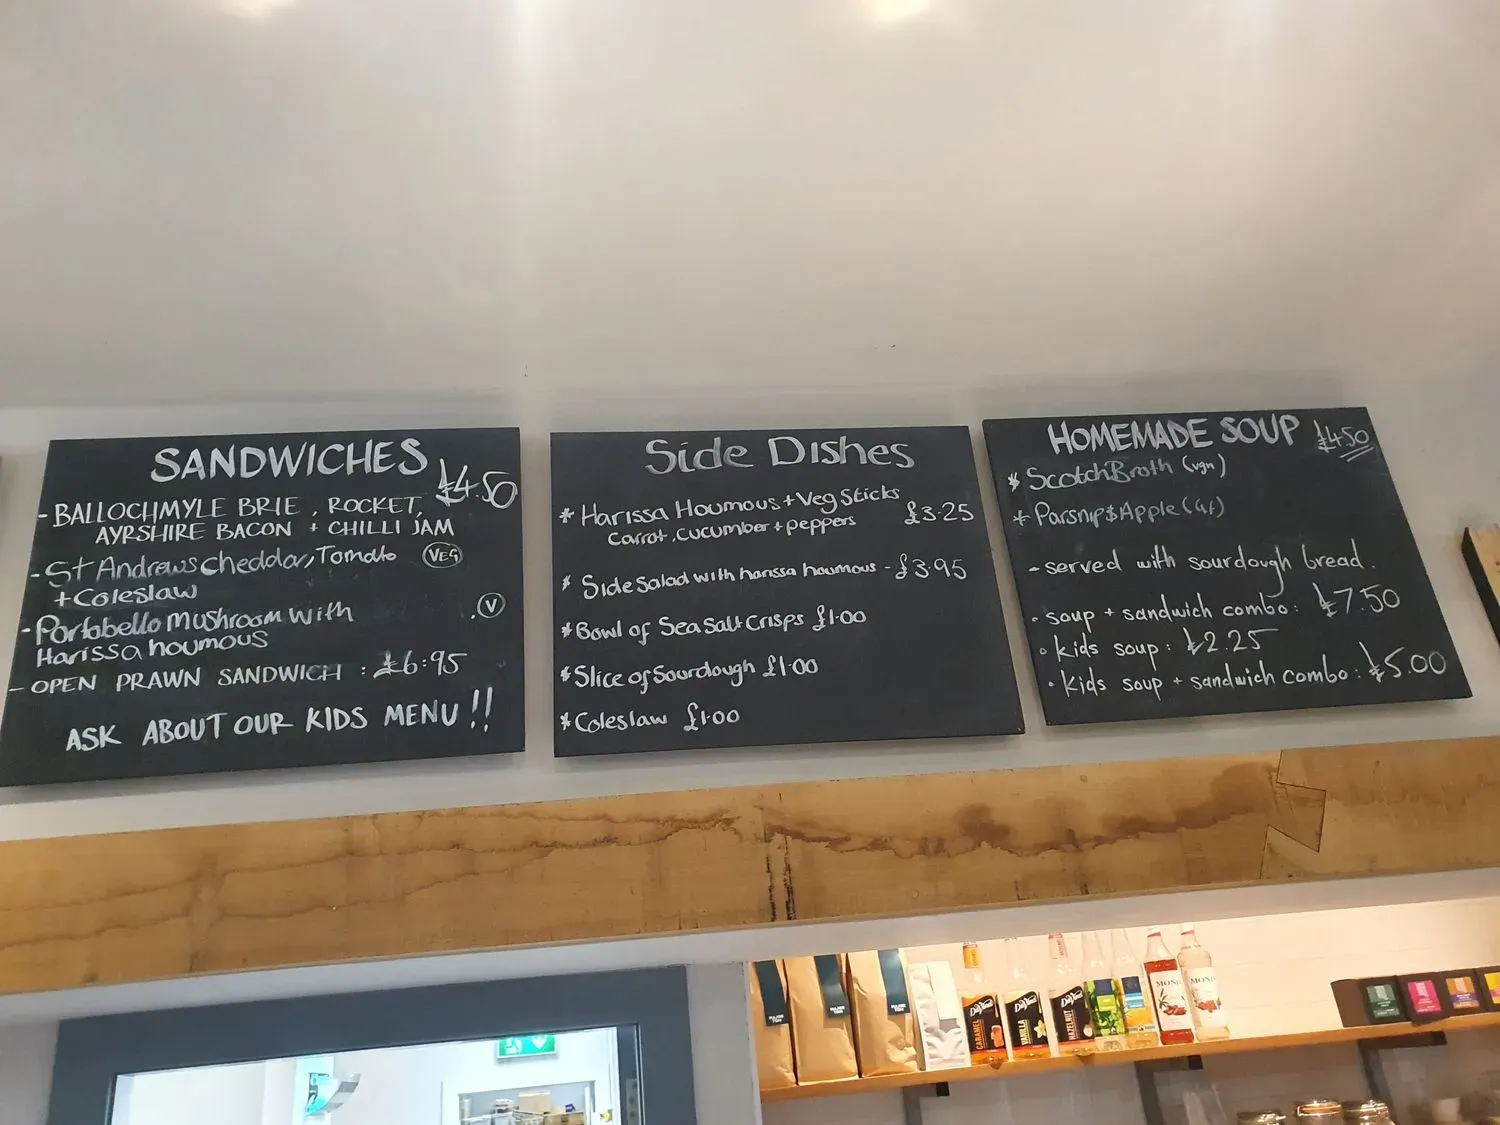 SANDWICHES
£4.50
- BALLOCHMYLE BRIE, ROCKET,
AYRSHIRE BACON + CHILLI JAM
- St Andrews cheddar, Tomato (VEG)
+ Coleslaw
- Portobello mushroom with (V)
Harissa houmous
- OPEN PRAWN SANDWICH : £6.95
ASK ABOUT OUR KIDS MENU!!
Side Dishes
* Harissa Houmous + Veg Sticks
Carrot, cucumber + peppers £3.25
* Side salad with harissa houmous - £3.95
* Bowl of Sea Salt Crisps £1.00
* Slice of Sourdough £1.00
* Coleslaw £1.00
HOMEMADE SOUP £4.50
* Scotch Broth (vgn)
* Parsnip & Apple (Gf)
- served with sourdough bread.
• soup + sandwich combo: £7.50
• kids soup: £2.25
• kids soup + sandwich combo: £5.00
DaVinci
CARAMEL
DaVinci
VANILLA
DaVinci
HAZELNUT
MONIN
MONIN